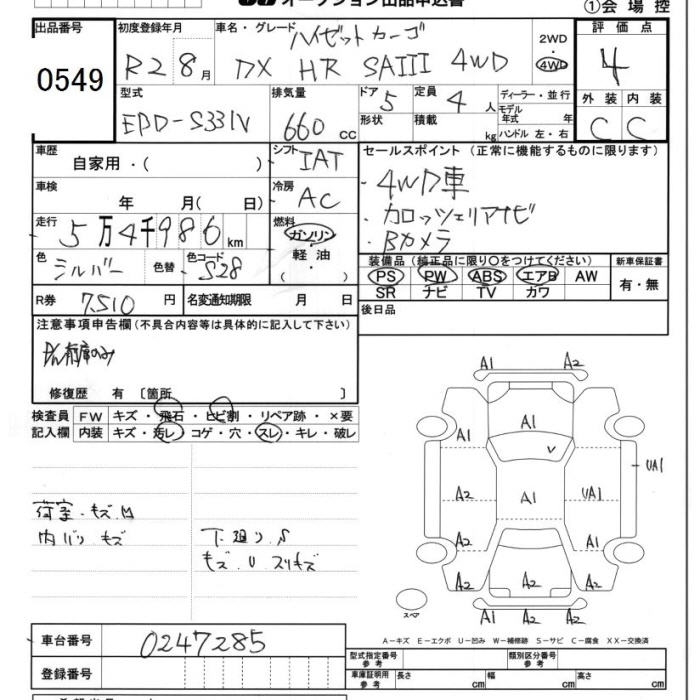 オークション出品申込書 ①会場控
出品番号 初度登録年月 車名・グレード 2WD 評価点
0549 R2 8月 ハイゼットカーゴ DX HR SAIII 4WD 4WD 4
型式 排気量 ドア 定員 ディーラー・並行 外装 内装
EBD-S331V 660 cc 5 4人 モデル年式 年 C C
形状 積載 kg ハンドル 左・右
車歴 シフト セールスポイント (正常に機能するものに限ります)
自家用・( ) IAT
4WD車
車検 冷房
年 月( 日) AC
カロッツェリアナビ
走行 燃料
5万4千986 km ガソリン
Bカメラ
軽油
・( )・
色 色替 色コード
シルバー S28
装備品 (純正品に限り○をつけてください) 新車保証書
PS PW ABS エアB AW 有・無
SR ナビ TV カワ
R券 7,510 円 名変通知期限 月 日
後日品
注意事項申告欄(不具合内容等は具体的に記入して下さい)
修復歴 有 〔箇所 〕
検査員 FW キズ・飛石・ヒビ割・リペア跡・×要
記入欄 内装 キズ・汚レ・コゲ・穴・スレ・キレ・破レ
A1 A2
A1 A1
V
UA1
A2 A1 UA1
A2 A2
A2 A2 A2
A1 A2 A2
スペア
荷室・キズ、M
内バリ キズ
下廻り、S
キズ U スリキズ
車台番号 0247285
登録番号
A－キズ E－エクボ U－凹み W－補修跡 S－サビ C－腐食 XX－交換済
型式指定番号 参考 類別区分番号 参考
車庫証明用 参考 長さ cm 幅 cm 高さ cm